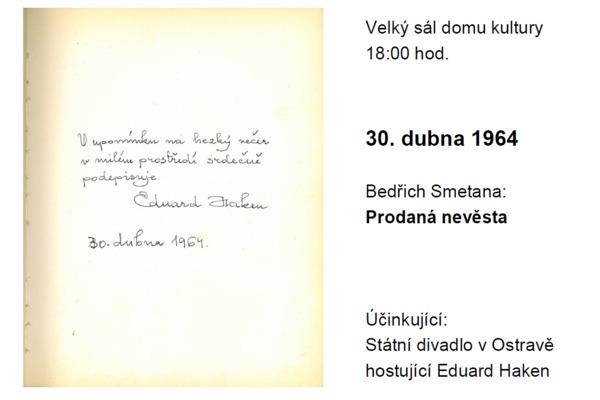 V upomínku na hezký večer
v milém prostředí srdečně
podepisuje
Eduard Haken
30. dubna 1964.
Velký sál domu kultury
18:00 hod.
30. dubna 1964
Bedřich Smetana:
Prodaná nevěsta
Účinkující:
Státní divadlo v Ostravě
hostující Eduard Haken